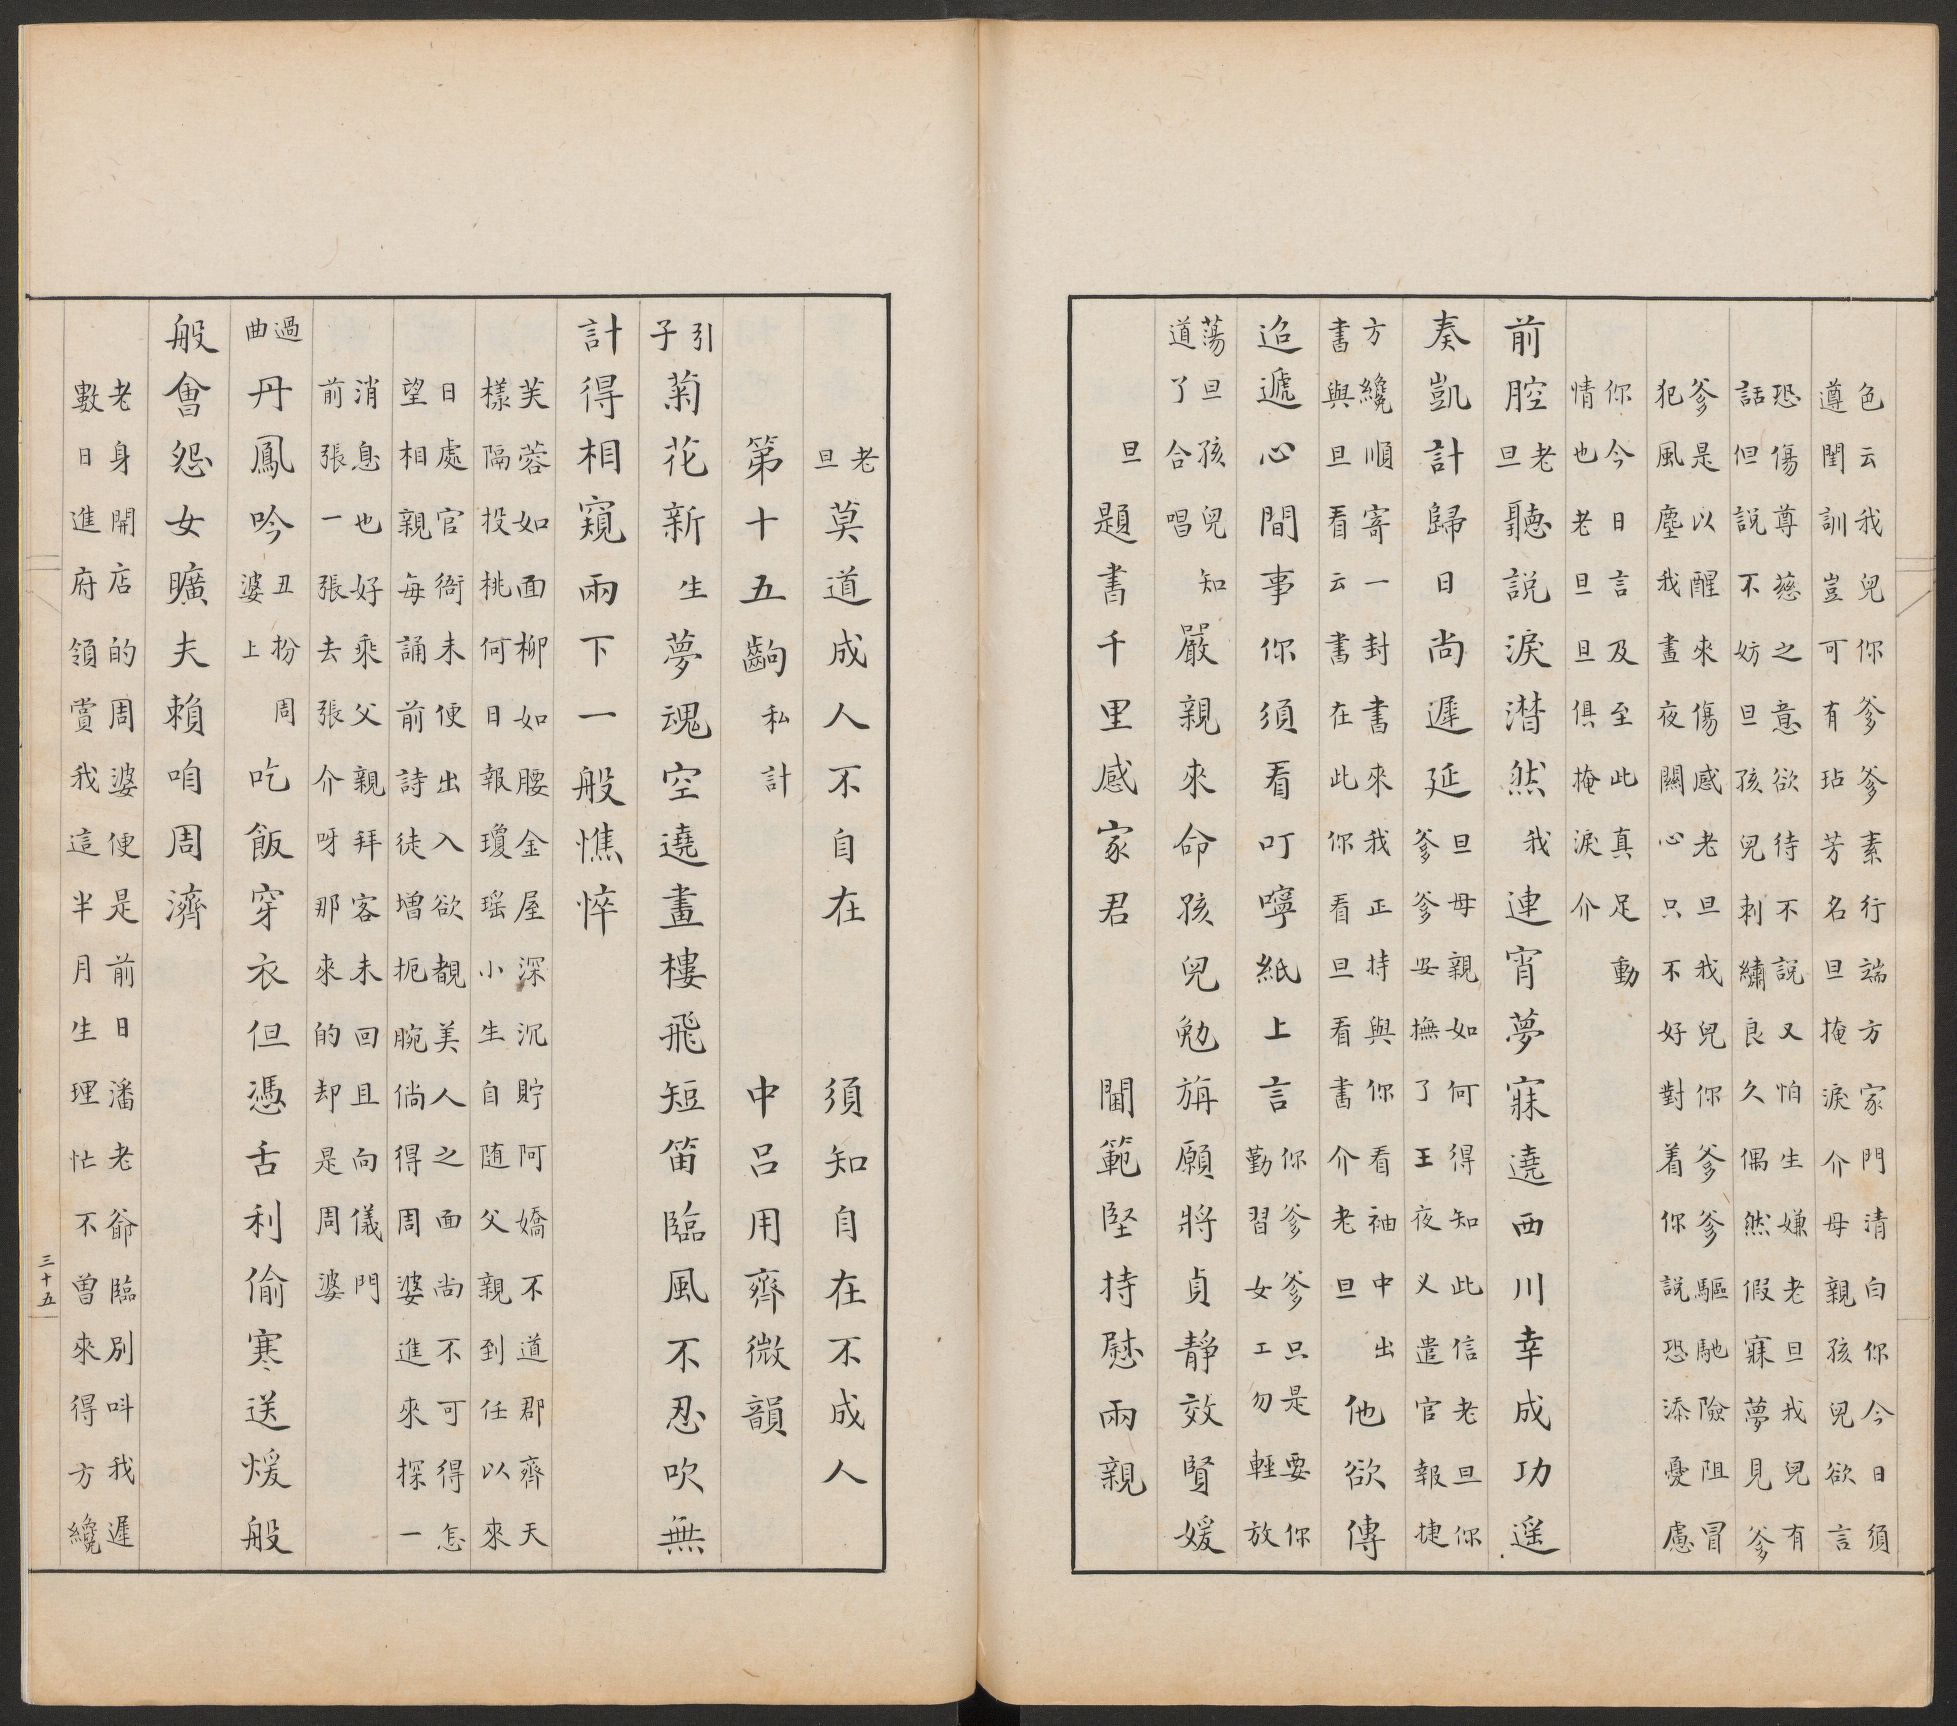 色云我兒你爹爹素行端方家門清白你今日須
遵閨訓豈可有玷芳名旦掩淚介母親孩兒欲言
恐傷尊慈之意欲待不說又怕生嫌老旦我兒有
話但說不妨旦孩兒刺繡良久偶然假寐夢見爹
爹是以醒來傷感老旦我兒你爹爹驅馳險阻冒
犯風塵我晝夜關心只不好對着你說恐添憂慮
你今日言及至此真足動
情也老旦旦俱掩淚介
前腔老旦聽說淚潸然我連宵夢寐遶西川幸成功遥
奏凱計歸日尚遲延旦母親如何得知此信老旦你
爹爹安撫了王夜乂遣官報捷
方纔順寄一封書來我正持與你看袖中出
書與旦看云書在此你看旦看書介老旦他欲傳
迢遞心間事你須看叮嚀紙上言你爹爹只是要你
勤習女工勿輕放
蕩旦孩兒知
道了合唱嚴親來命孩兒勉旃願將貞靜效賢媛
旦題書千里感家君　閫範堅持慰兩親
老旦莫道成人不自在　須知自在不成人
第十五齣私計　中呂用齊微韻
引子菊花新生夢魂空遶畫樓飛短笛臨風不忍吹無
計得相窺兩下一般憔悴
芙蓉如面柳如腰金屋深沉貯阿嬌不道郡齊天
樣隔投桃何日報瓊瑶小生自随父親到任以來
日處官衙未便出入欲覩美人之面尚不可得怎
望相親每誦前詩徒增扼腕倘得周婆進來探一
消息也好乘父親拜客未回且向儀門
前張一張去張介呀那來的却是周婆
過曲丹鳳吟丑扮周婆上吃飯穿衣但憑舌利偷寒送煖般
般會怨女曠夫賴咱周濟
老身開店的周婆便是前日潘老爺臨別呌我遲
數日進府領賞我這半月生理忙不曾來得方纔
三十五